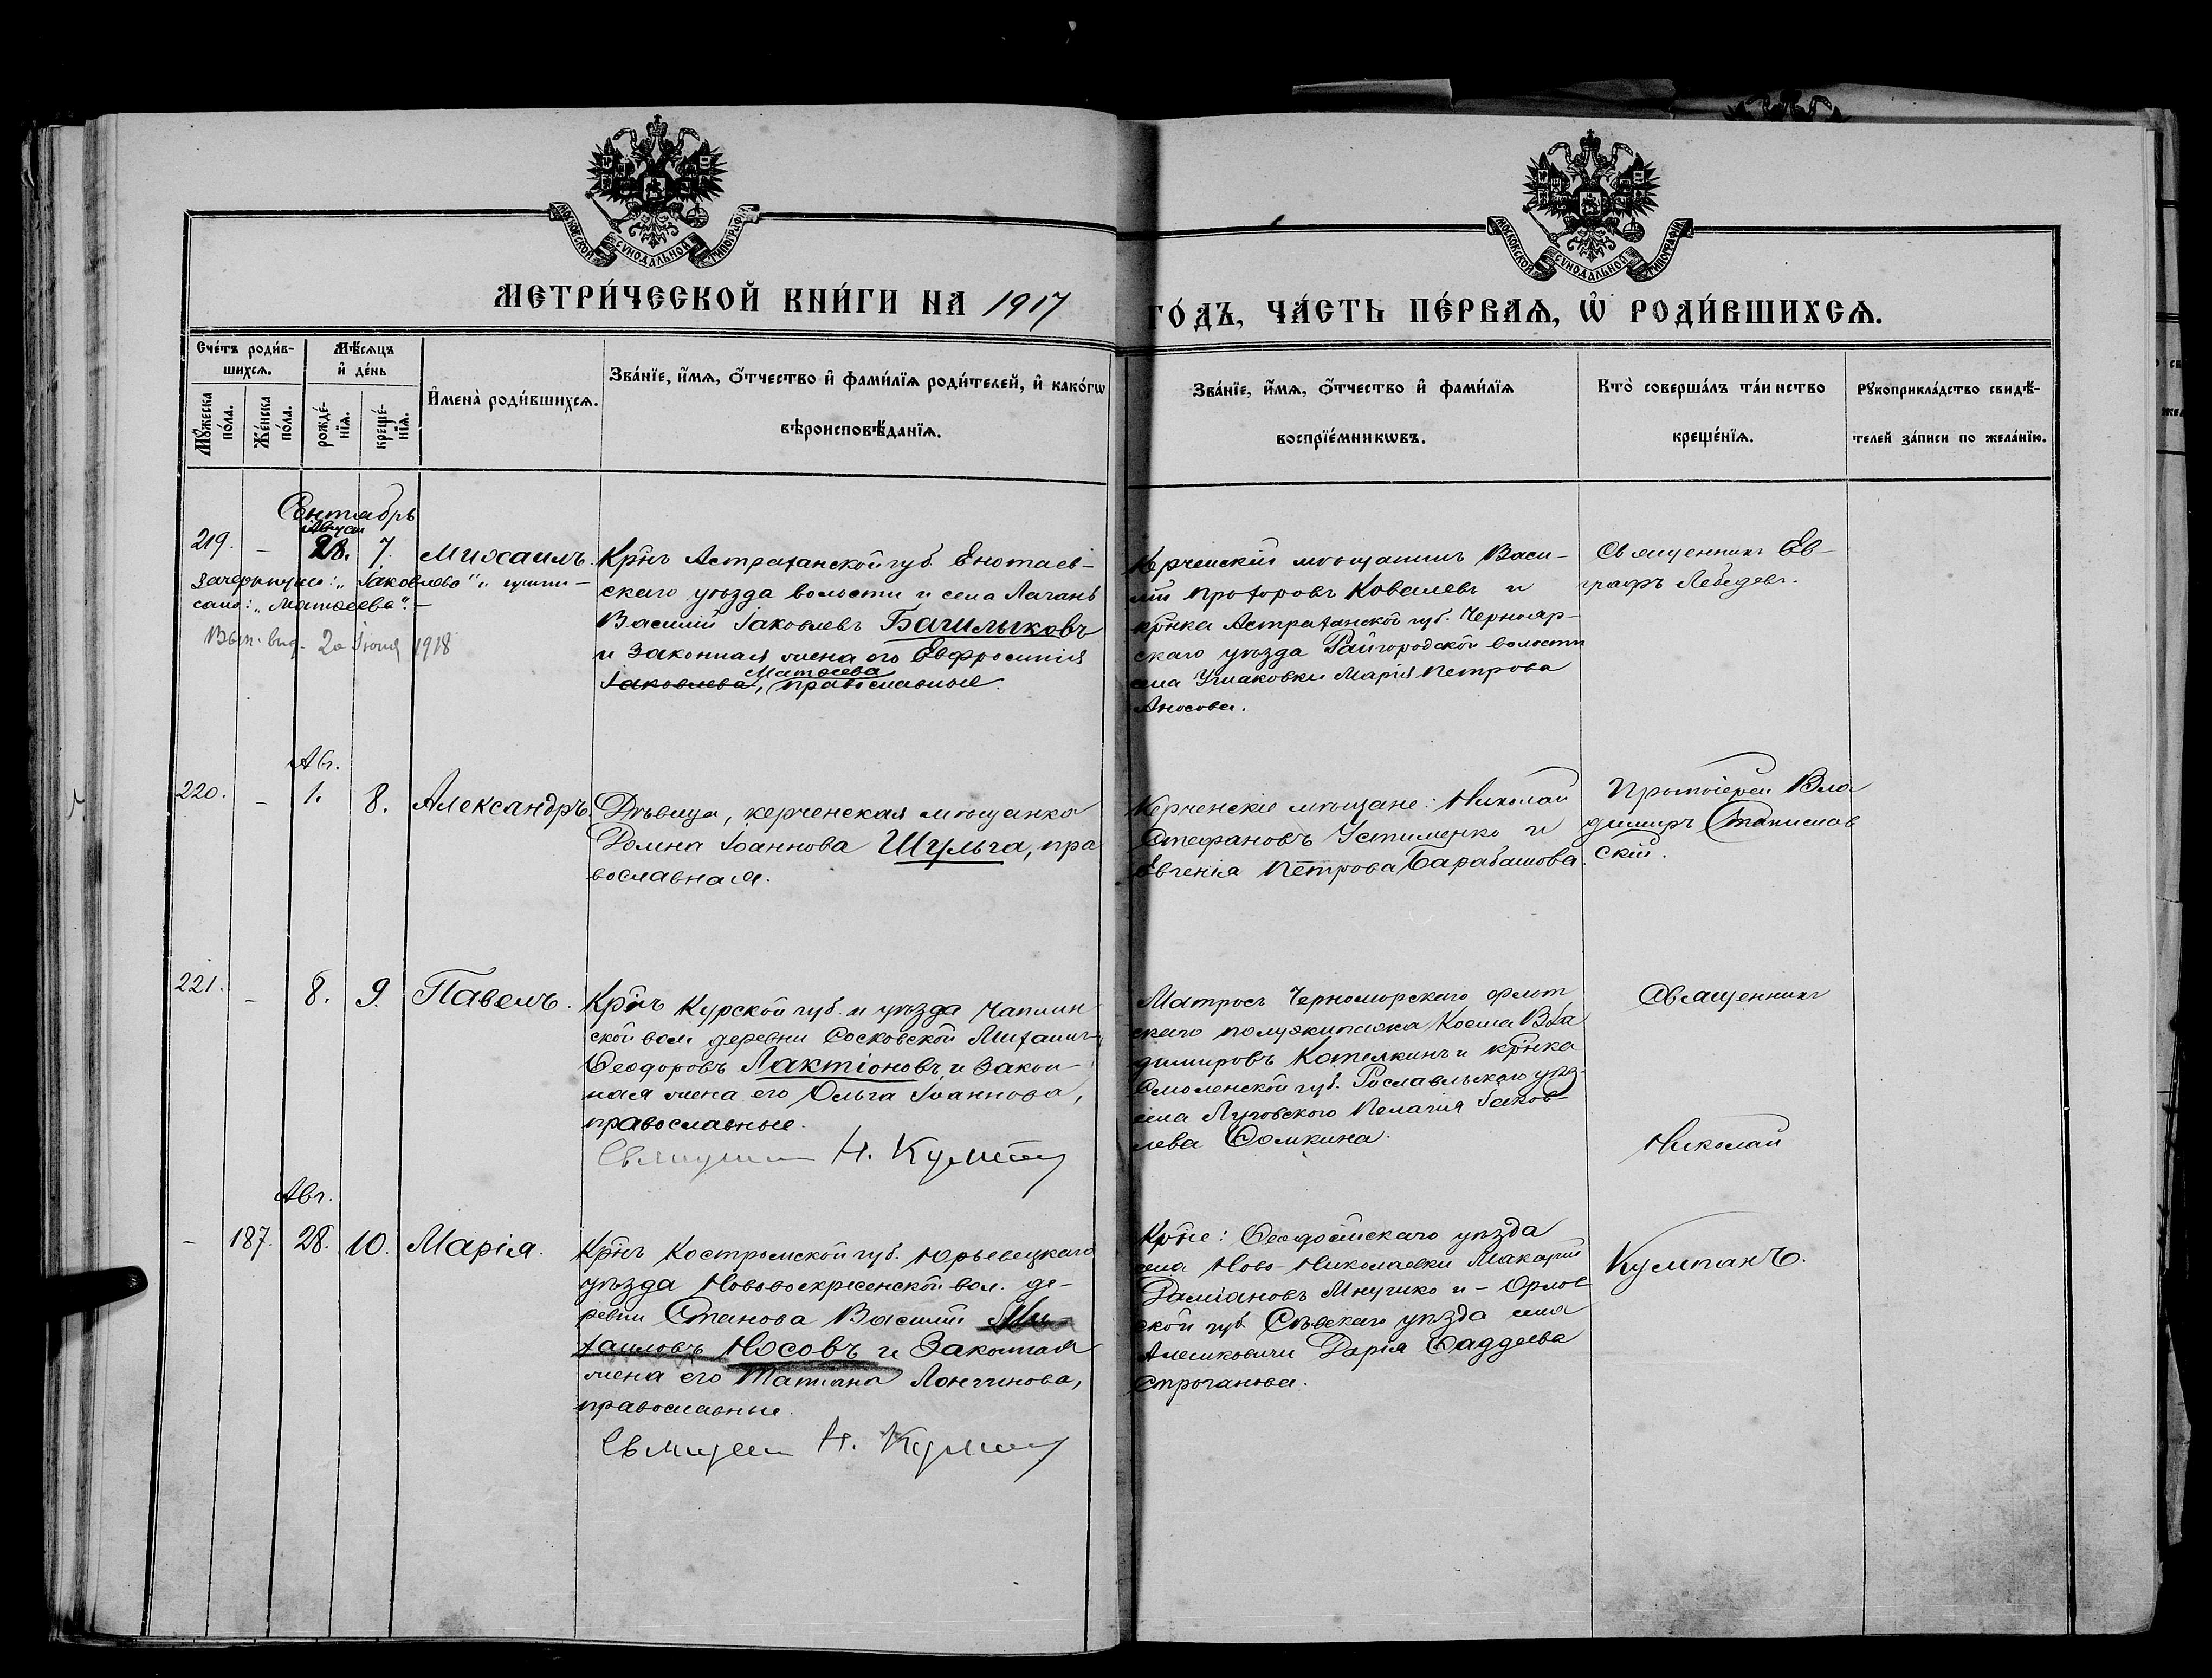 МОСКОВСКОЙ СѴНОДАЛЬНОЙ ТИПОГРАФІИ
МОСКОВСКОЙ СѴНОДАЛЬНОЙ ТИПОГРАФІИ
МЕТРИ́ЧЕСКОЙ КНИ́ГИ НА 1917
ГО́ДЪ, ЧА́СТЬ ПЕ́РВАѦ, Ѡ҆ РОДИ́ВШИХСѦ.
Сче́тъ роди́в-
шихсѧ.
Мѣ́сѧцъ
и҆ де́нь
Мꙋ́жеска
по́ла.
Же́нска
по́ла.
рожде́-
нїѧ.
креще́-
нїѧ.
И҆мена̀ роди́вшихсѧ.
Зва́нїе, и҆́мѧ, ѻ҆́тчество и҆ фами́лїѧ роди́телей, и҆ како́гѡ
вѣроисповѣ́данїѧ.
Зва́нїе, и҆́мѧ, ѻ҆́тчество и҆ фами́лїѧ
воспрїе́мникѡвъ.
Кто̀ соверша́лъ та́инство
креще́нїѧ.
Рꙋкоприкла́дство свидѣ́-
телей за́писи по жела́нїю.
Сентябрь
Август
219. - 28. 7. Михаилъ.
Зачеркнуто: „Іаковлева" и напи-
сано: „Матѳеева". -
Вып. выд. 20 Іюня 1918
Крнъ Астраханской губ. Енотаев-
скаго уѣзда волости и села Лагань
Василій Іаковлевъ Башлыковъ
и законная жена его Евфросинія
Матѳеева
Іаковлева, православные.
Керченскій мѣщанинъ Васи-
лій Прохоровъ Ковалевъ и
крнка Астраханской губ. Чернояр-
скаго уѣзда Райгородской волости
села Ушаковки Марія Петрова
Аносова.
Священникъ Ев-
графъ Лебедевъ.
Авг.
220. - 1. 8. Александръ.
Дѣвица, керченская мѣщанка
Домна Іоаннова Шульга, пра
вославная.
Керченскіе мѣщане: Николай
Стефановъ Устименко и
Евгенія Петрова Барабашова.
Протоіерей Вла
димиръ Станислав
скій.
221. - 8. 9. Павелъ.
Крнъ Курской губ. и уѣзда Чаплин
ской вол. деревни Сосковской Михаилъ
Ѳеодоровъ Лактіоновъ и закон-
ная жена его Ольга Іоаннова,
православные.
Священникъ Н. Кумпанъ
Матросъ Черноморскаго флот
скаго полуэкипажа Косма Вла
димировъ Котелкинъ и крнка
Смоленской губ. Рославльскаго уѣз.
села Луговского Пелагія Іаков-
лева Ѳомкина.
Священникъ
Николай
Авг.
- 187. 28. 10. Марія.
Крнъ Костромской губ. Юрьевецкаго
уѣзда Нововоскресенской вол. де-
ревни Станова Василій Ми-
хаиловъ Носовъ и законная
жена его Татіана Лонгинова,
православные.
Священникъ Н. Кумпанъ
Крне: Ѳеодосійскаго уѣзда
села Ново-Николаевки Макарій
Даміановъ Мнушко и - Орлов
ской губ. Сѣвскаго уѣзда села
Алешковичи Дарія Ѳаддеева
Строганова.
Кумпанъ.